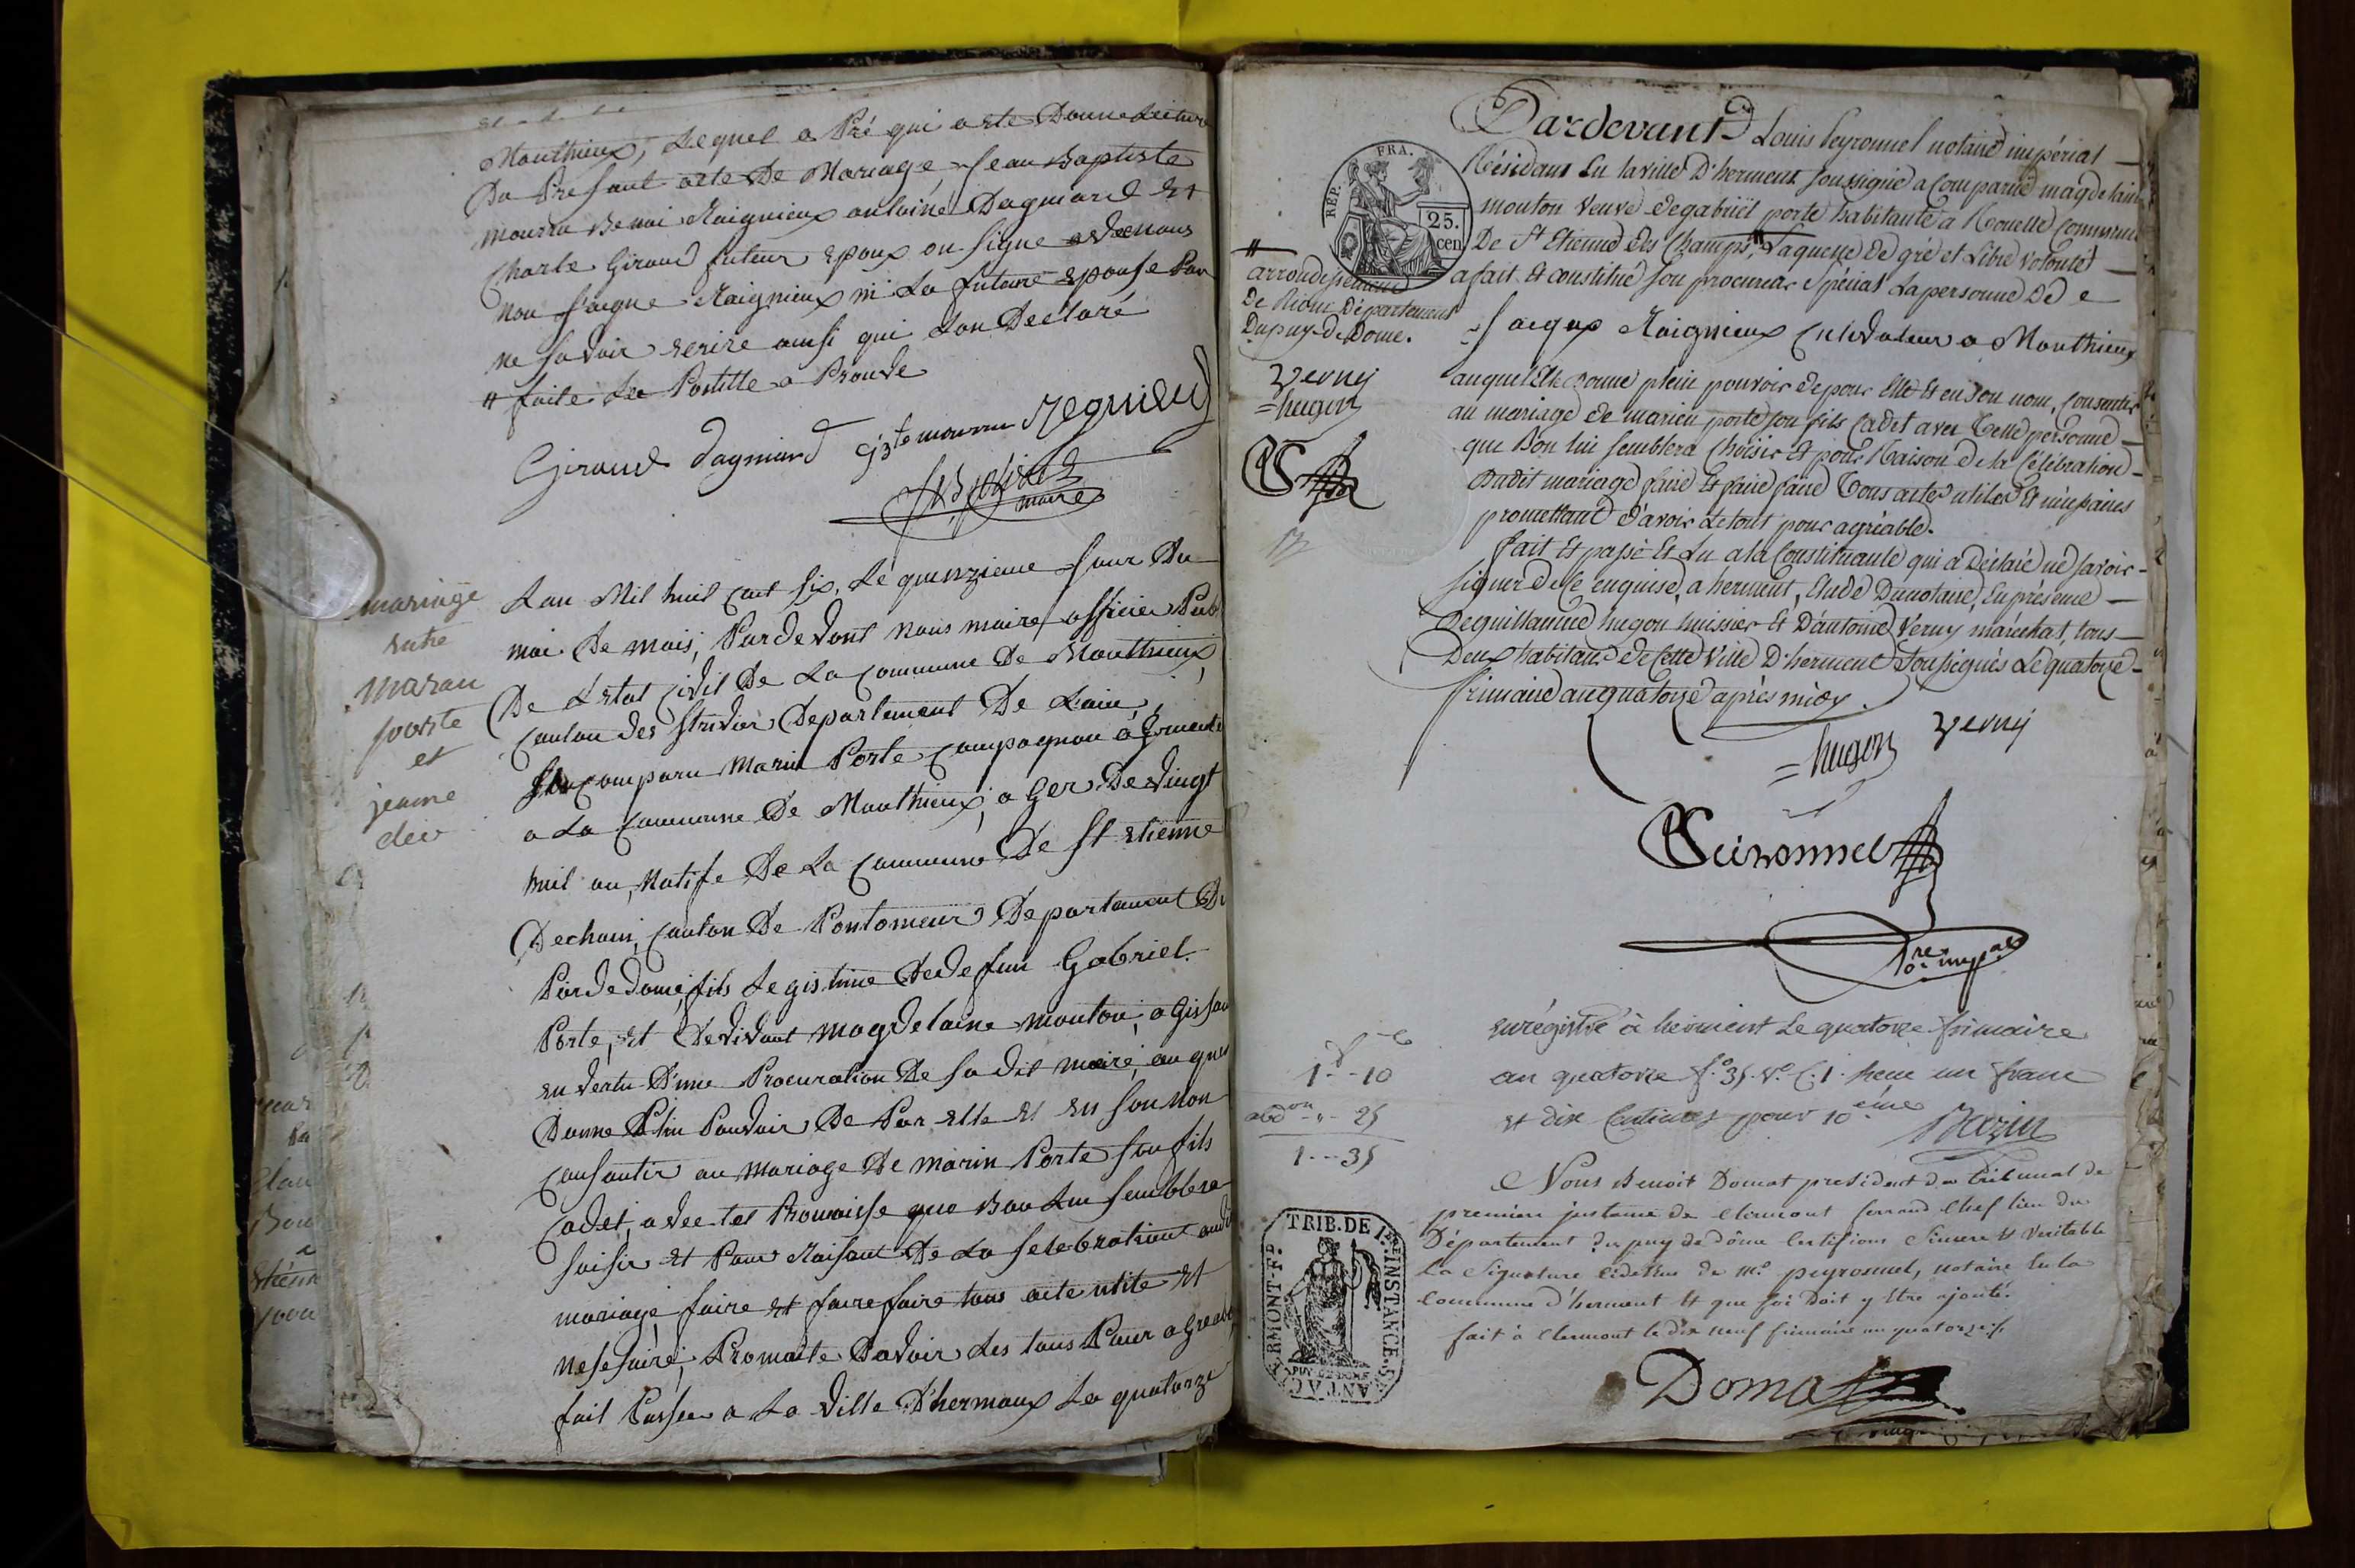 Monthieux, Lequel a Pré qui a ete Donne Lecture
Du Presant acte De Mariage, Jean Baptiste
mourra Benoi Raignieux antoine Dagniard Et
Charle Giraud futeur Epoux on Signe avec nous
non Saigne Raignieux ni La future Epouse Pour
ne Savoir Ecrire ainsi qui Lon Declaré
# faite La Postille a Prouve
Giraud dagniard jbte mourra Regnieux
maire
mariage
entre
maran
porte
et
jeanne
Lan Mil huit Cant Six, Le quenzieme Jour Du
moi De mais, Pardevont nous maire officier Pub
De L'etat Cidil De La Commune De Monthieux,
Canton des Strevoux Departement De Lain,
Comparu Marin Porte Compagnon a
a La Commune De Monthieux, a Ger De Vingt
huit an, Natife De La Commune De St Etienne
Dechain, Canton De Pontomeur Departament Du
Poidedome, fils Legistime De defun Gabriel
Porte, Et De Vivant magdelaine mouton, a Gissan
en Vertu D'une Procuration De Sa dit maire, au quel
Donne Plin Pouvoir De Par Elle Et En Son Non
Consantir au Mariage De Marin Porte Son fils
Cadet, avec tel Promaisse que Bon Lui Semblera
Saisir Et Pour Raisont De La Selebrationt audi
mariage faire Et faire faire tous acte utile Et
nesesaire, Promaite Davoir Les tous Pour a Greable
fait Passee a La Ville D'hermaux La quatorze
Pardevant Louis Peyronnel notaire impérial
Résidant En la ville D'herment soussigné a Comparue magdelaine
mouton Veuve de gabriël porte habitante à Rouelle Commune
De St Etienne des Champs,# Laquelle de gré et Libre volonté
a fait Et constitué son procureur Spécial La personne De
Jacque Raignieux Cultivateur a Monthieux
auquel Elle donne plein pouvoir de pour Elle Et en son nom, Consentir
au mariage de marien porte son fils Cadet avec telle personne
que Bon lui semblera Choisir Et pour Raison de la Célébration
Dudit mariage faire Et faire faire tous actes utiles Et nécessaires
promettant d'avoir Le tout pour agréable.
fait Et passé Et Lu a la Constituante qui a Déclaré ne savoir
signer de ce enquise, a herment, Etude Du notaire, En présence
De guillaume hugon huissier Et D'antoine Verny maréchal, tous
Deux habitans de Cette Ville D'herment soussignés Le quatorze
frimaire an quatorze après midy.
REP. FRA.
25.
cen
#
arrondissement
De Riom Département
Du puy-de-Dome.
Verny
=hugon
Verny
=hugon
Peironnel
enrégistré à herment Le quatorze frimaire
an quatorze f.º 35. v.º C. 1. Recu un franc
et dix Centimes pour 10.ème
1 - 10
25
1 - 35
Nous Benoit Domat président du tribunal de
premiere instance de Clermont ferrand Chef lieu du
Département du puy de dôme Certifions Sincere et Veritable
La Signature cidessus de Mº. peyronnel, notaire en la
Commune d'herment et que foi Doit y être ajouté.
fait à Clermont le dix neuf frimaire an quatorze
TRIB. DE 1ERE INSTANCE. S
CLERMONT-FD.
PUY DE DOME
Domat